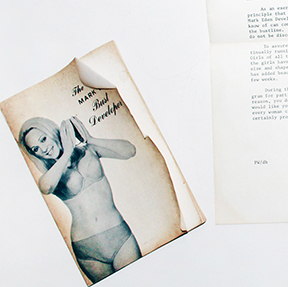 The
MARK
Bust
Developer
As an exer
principle that
Mark Eden Devel
know of can com
the bustline.
do not be disc
To assure
tinually runni
Girls of all t
the girls have
size and shape
has added beau
few weeks.
During th
gram for part
reason, you d
would like yo
every woman
certainly pro
PW/db